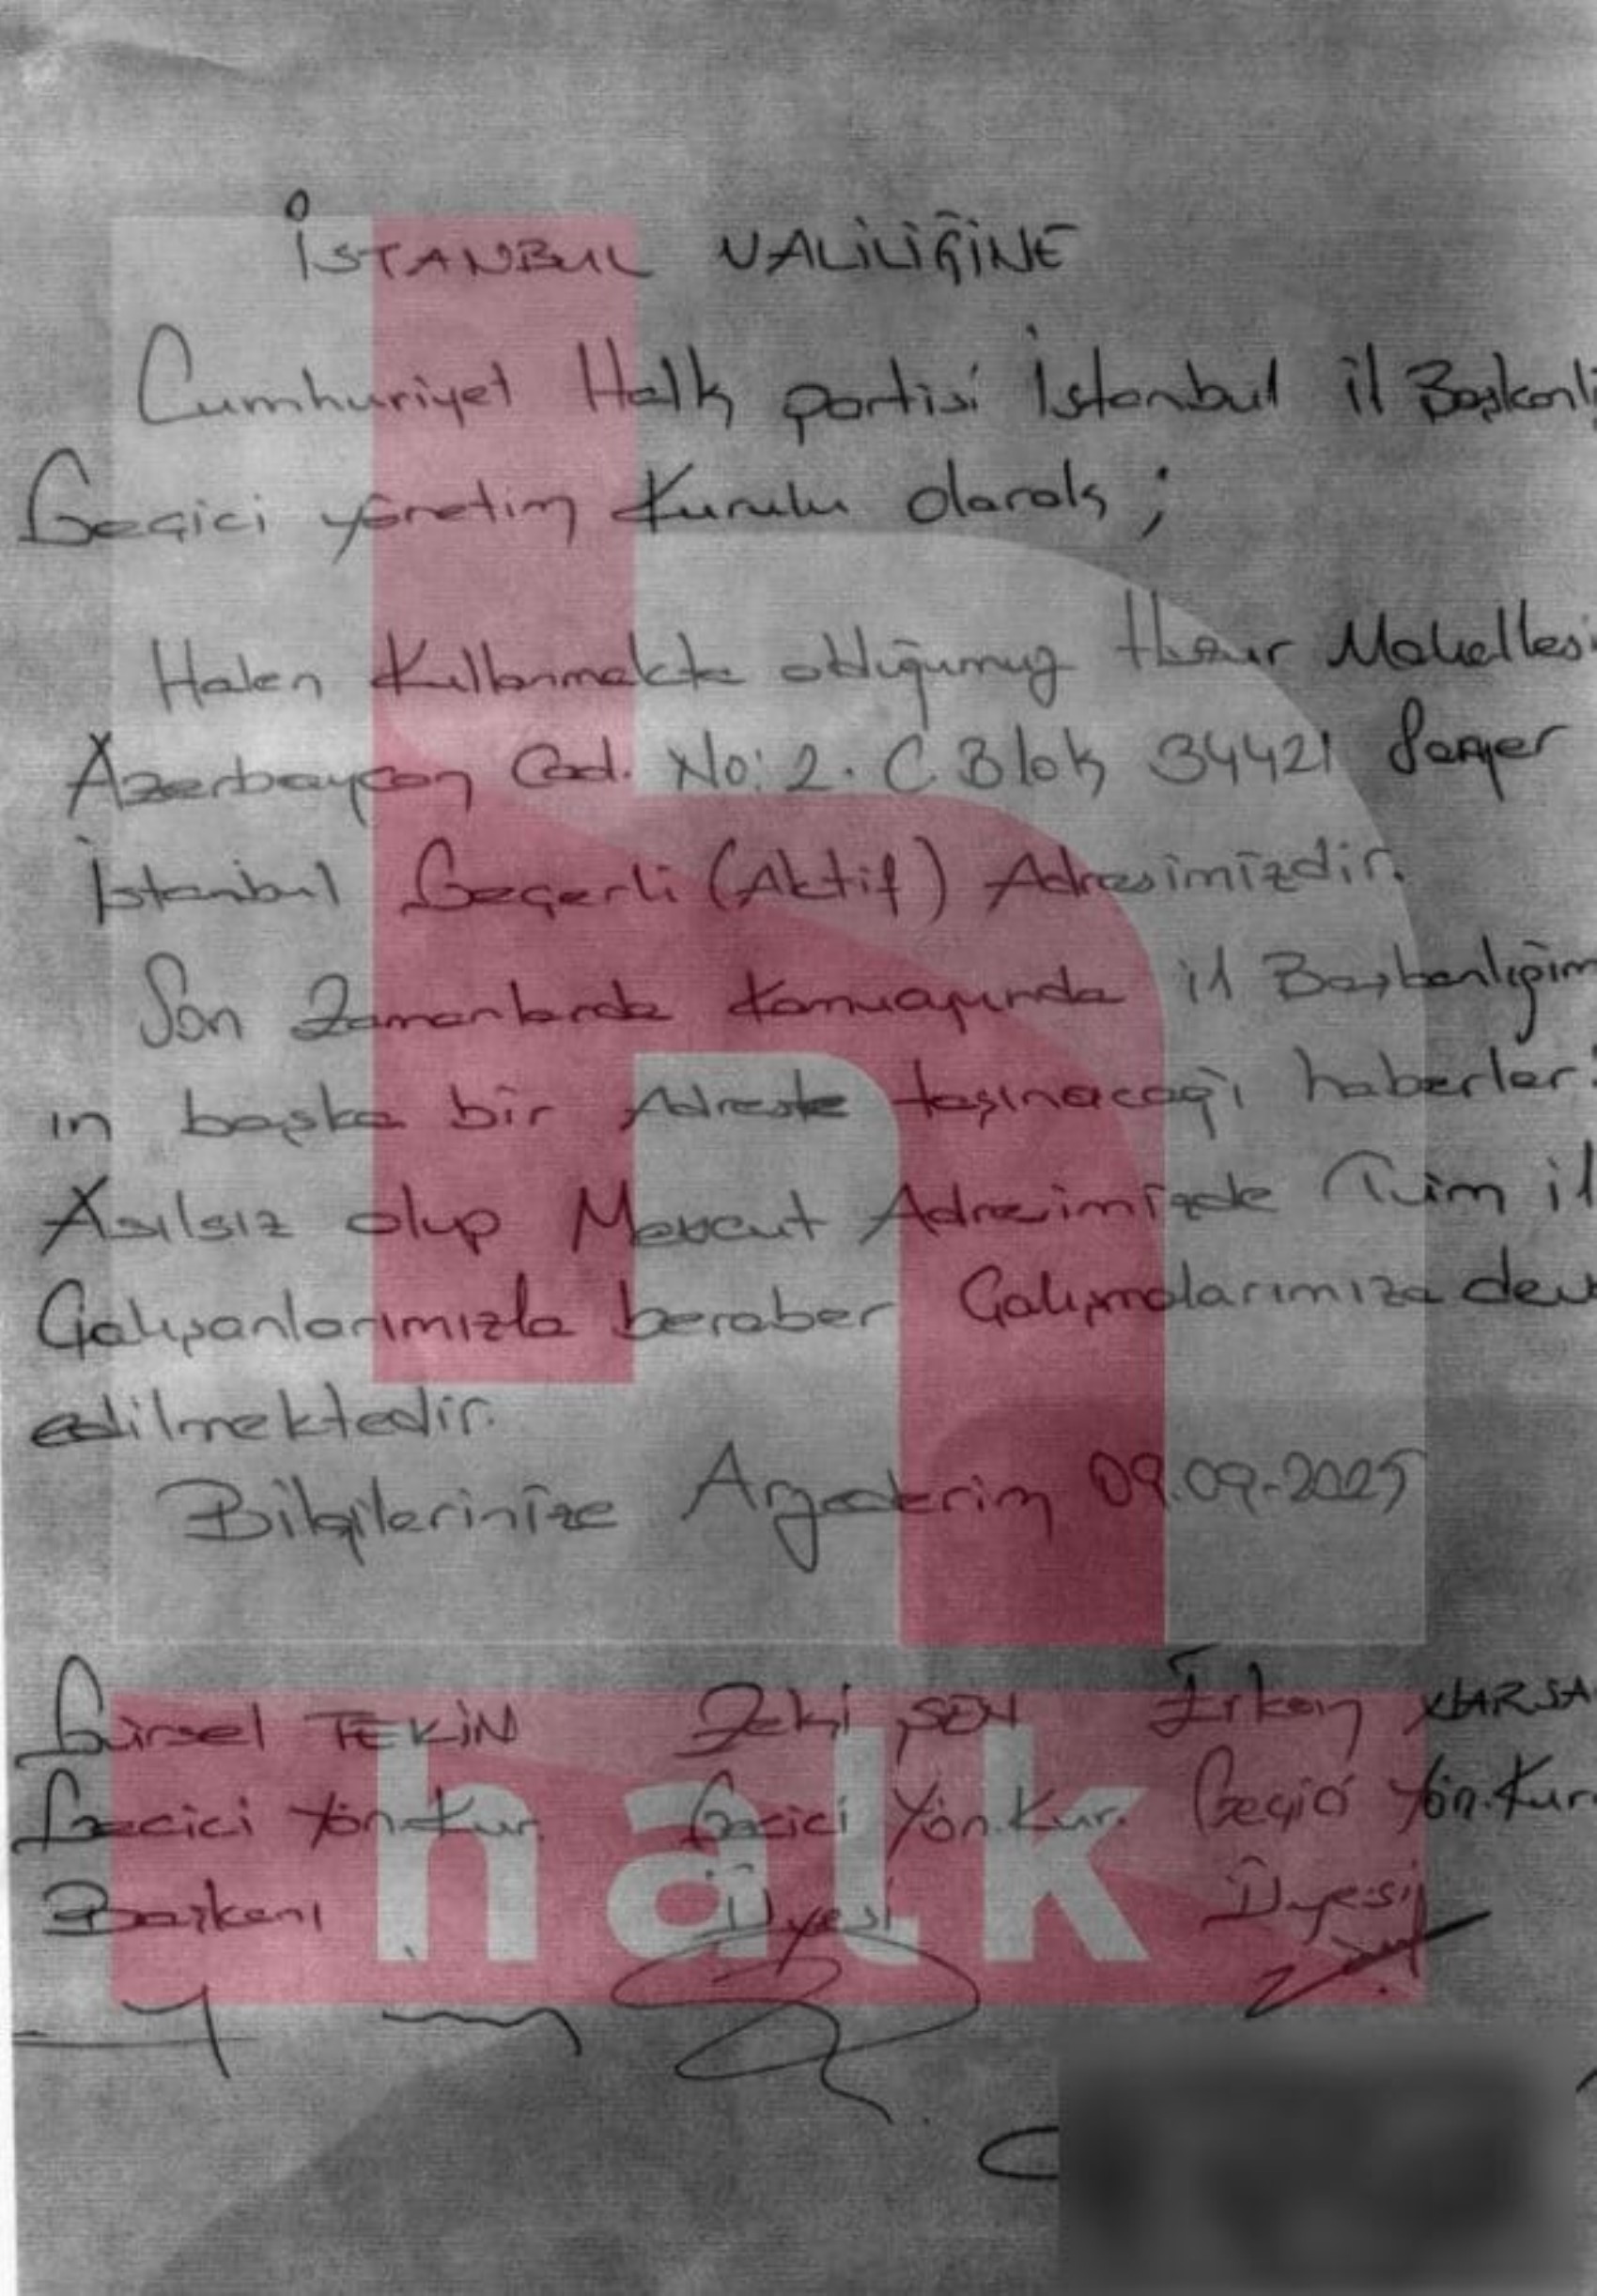 İSTANBUL VALİLİĞİNE
Cumhuriyet Halk partisi İstanbul il Başkanlı
Geçici yönetim Kurulu olarak ;
Halen Kullanmakta olduğumuz Huzur Mahallesi
Azerbaycan Cad. No: 2. C Blok 34421 Sarıyer
İstanbul Geçerli (Aktif) Adresimizdir.
Son Zamanlarda Kamuoyunda il Başkanlığım
ın başka bir Adreste taşınacağı haberleri
Asılsız olup Mevcut Adresimizde Tüm il
Çalışanlarımızla beraber Çalışmalarımıza dev
edilmektedir.
Bilgilerinize Arzederim 09.09-2025
Gürsel TEKİN Zeki ŞEN Erkan NARSA
Geçici Yön.Kur. Geçici Yön.Kur. Geçici Yön.Kur.
Başkanı Üyesi Üyesi
h
halk